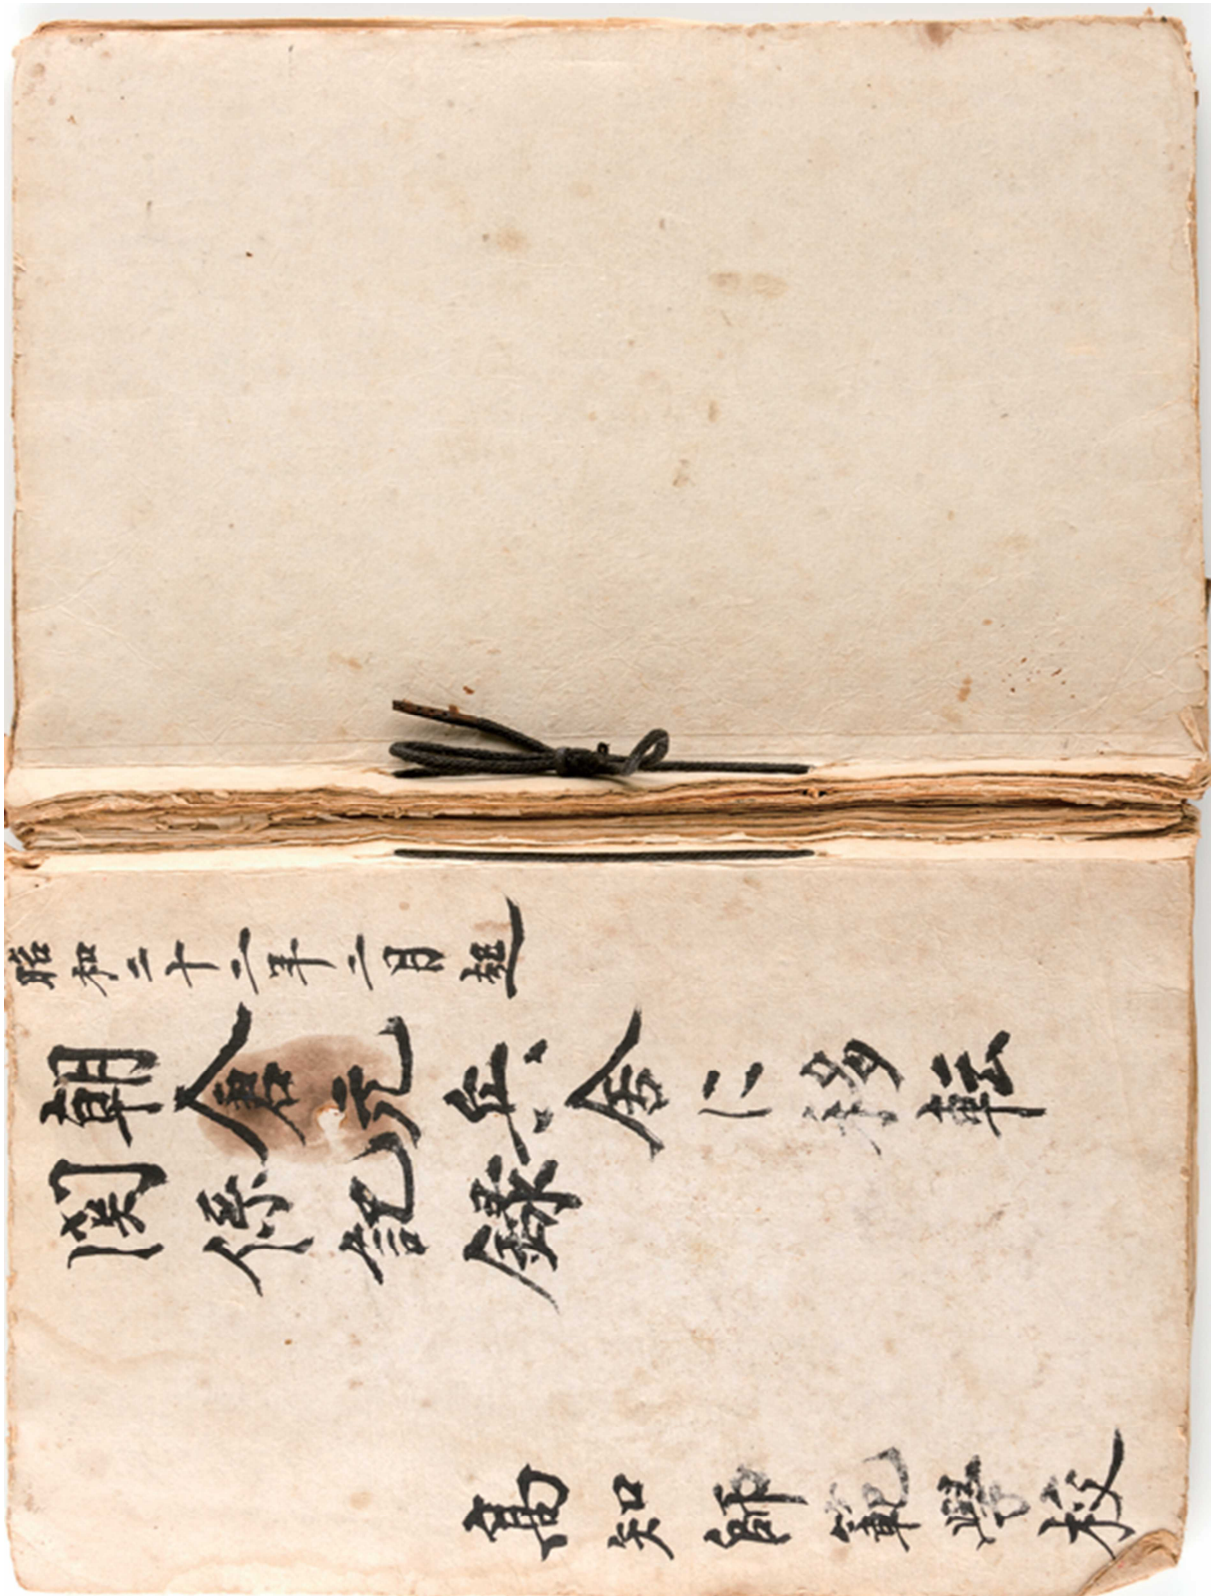 昭和二十二年二月起
朝倉元兵舎に移転
関係記録
高知師範学校